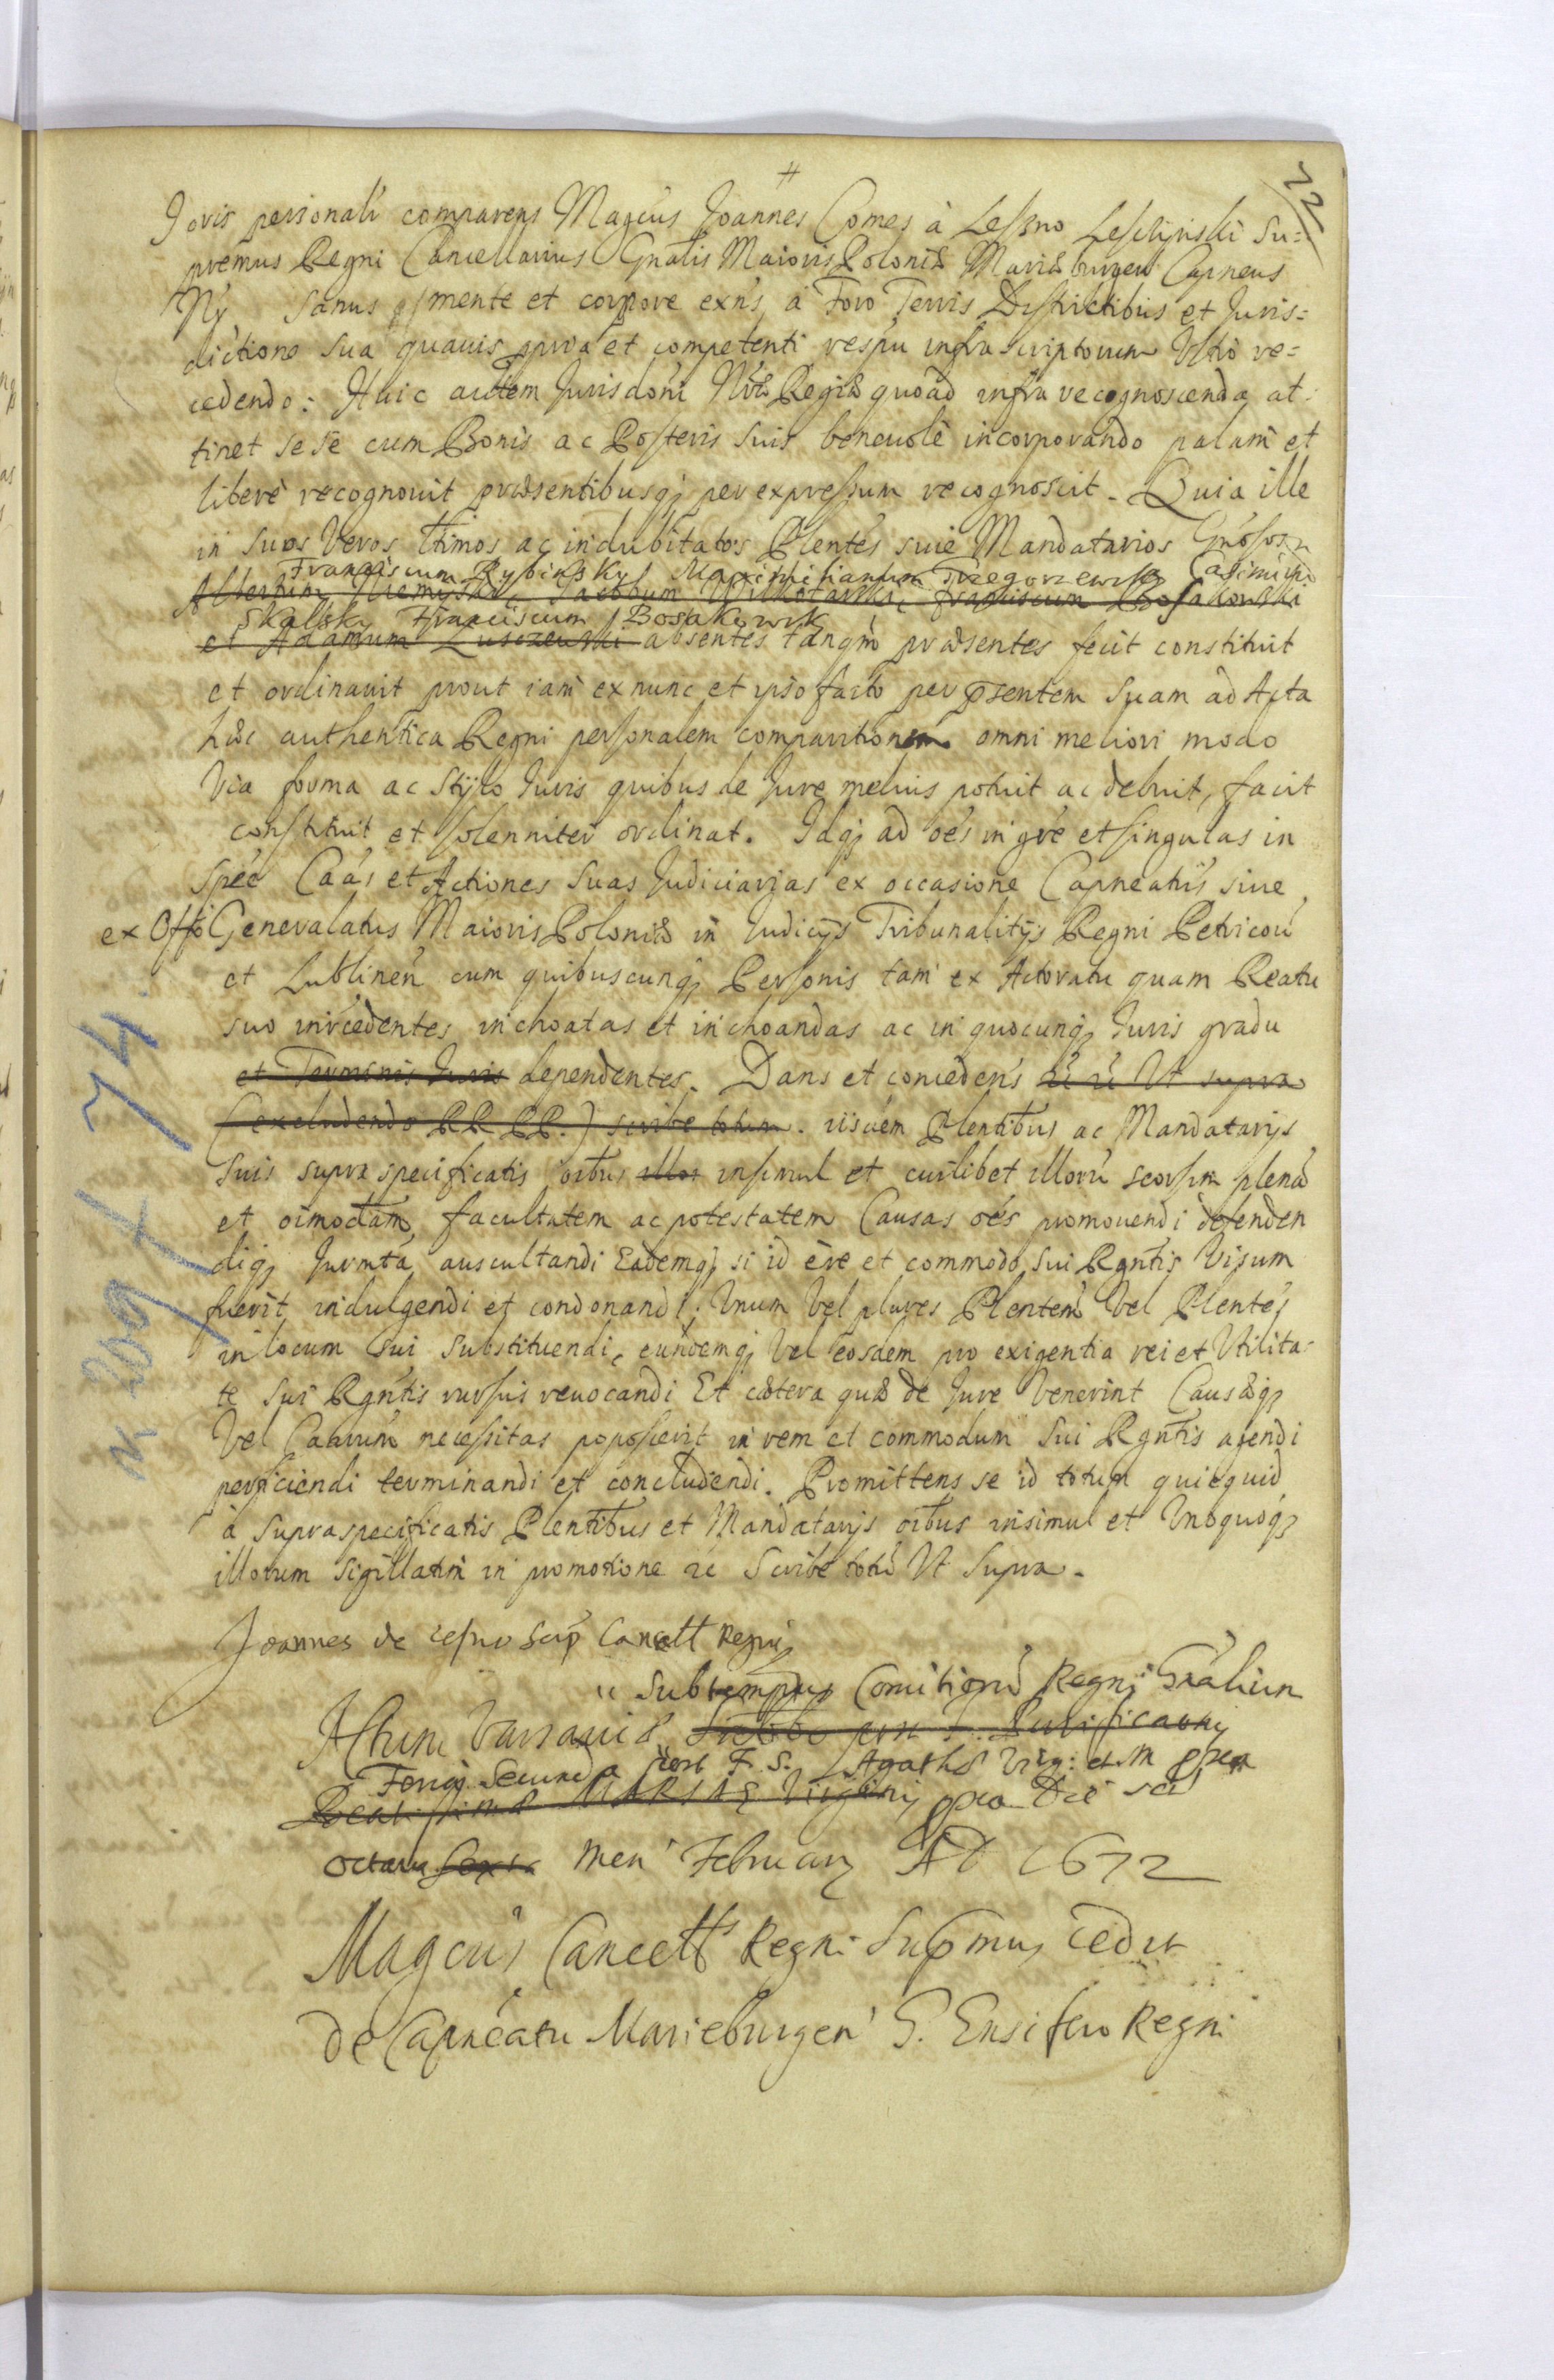 22
#
Jovis personalr comparens Magcus Joannes Comes à Leszno Lesczijnski Su=
premus Regni Cancellarius Gnalis Maioris Poloniæ Mariæburgen Capneus
Ny Sanus mente et corpore exns, à Foro Terris Districtibus et Juris=
dictione sua quauis ppria et competenti respu infrascriptorum Vltro re=
cedendo: Huic autem Jurisdoni Nræ Regiæ quoad infra recognoscenda at=
tinet sese cum Bonis ac Posteris suis beneuolè incorporando palam et
liberè recognouit præsentibusqȝ per expressum recognoscit. Quia ille
in suos Veros Ltimos ac indubitatos Plentes siue Mandatarios Gnosos
Franciscum Rybinsky Maximilianum Trzegorzewsk Casimirum
Albertum Niemyski, Jacobum franciscum Bosakowski
Skalsky Franciscum Bosakowsk
et Adamum Lusczewski absentes tanqm præsentes fecit constituit
et ordinauit prout iam ex nunc et ipso facto per psentem suam ad Acta
hæc authentica Regni personalem comparitionem omni meliori modo
Via forma ac Stylo Juris quibus de Jure melius potuit ac debuit, facit
constituit et solenniter ordinat. Idqȝ ad oes in gre et singulas in
spee Caas et Actiones suas Judiciarias ex occasione Capneatus siue
ex Offo Generalatus Maioris Poloniæ in Judicijs Tribunalitijs Regni Petricou
et Lublinen cum quibuscunqȝ Personis tam ex Actoratu quam Reatu
suo incedentes inchoatas et inchoandas ac in quocunqȝ Juris gradu
et Terminis Juris dependentes. Dans et concedens Vt supra
(excludendo RR PP.) scribe totum. iisdem Plentibus ac Mandatarijs
suis supra specificatis oibus illor insimul et cuilibet illorum seorsim plenã
et oimodam facultatem ac potestatem Causas oes promouendi defenden
diqȝ Jurmta auscultandi Eademqȝ si id ere et commodo sui Rgntis Visum
fuerit indulgendi et condonandi, Vnum Vel plures Plentem Vel Plentes
in locum sui substituendi, eundemqȝ Vel eosdem pro exigentia rei et Vtilita=
te sui Rgntis rursus reuocandi Et cætera quæ de Jure Venerint Causæqȝ
Vel Caarum necessitas poposcerit in rem et commodum sui Rgntis agendi
perficiendi terminandi et concludendi. Promittens se id totum quicquid
à supraspecificatis Plentibus et Mandatarijs oibus insimul et Vnoquoqȝ
illorum sigillatim in promotione ac scribe totũ Vt supra.
Joannes de Lesno Sup Cancell Regni
sub tempus Comitiorũ Regni Gralium
Actum Varsauiæ post F. Purificaonis
Feria Secunda post F. S. Agathæ Virg: et M pxa
Beatissimæ MARIAE Virginis pxa Die scl
octaua sexta Men February AD 1672
Magcus Cancells Regni Supmus cedit
de Capneatu Marieburgen G. Ensifero Regni